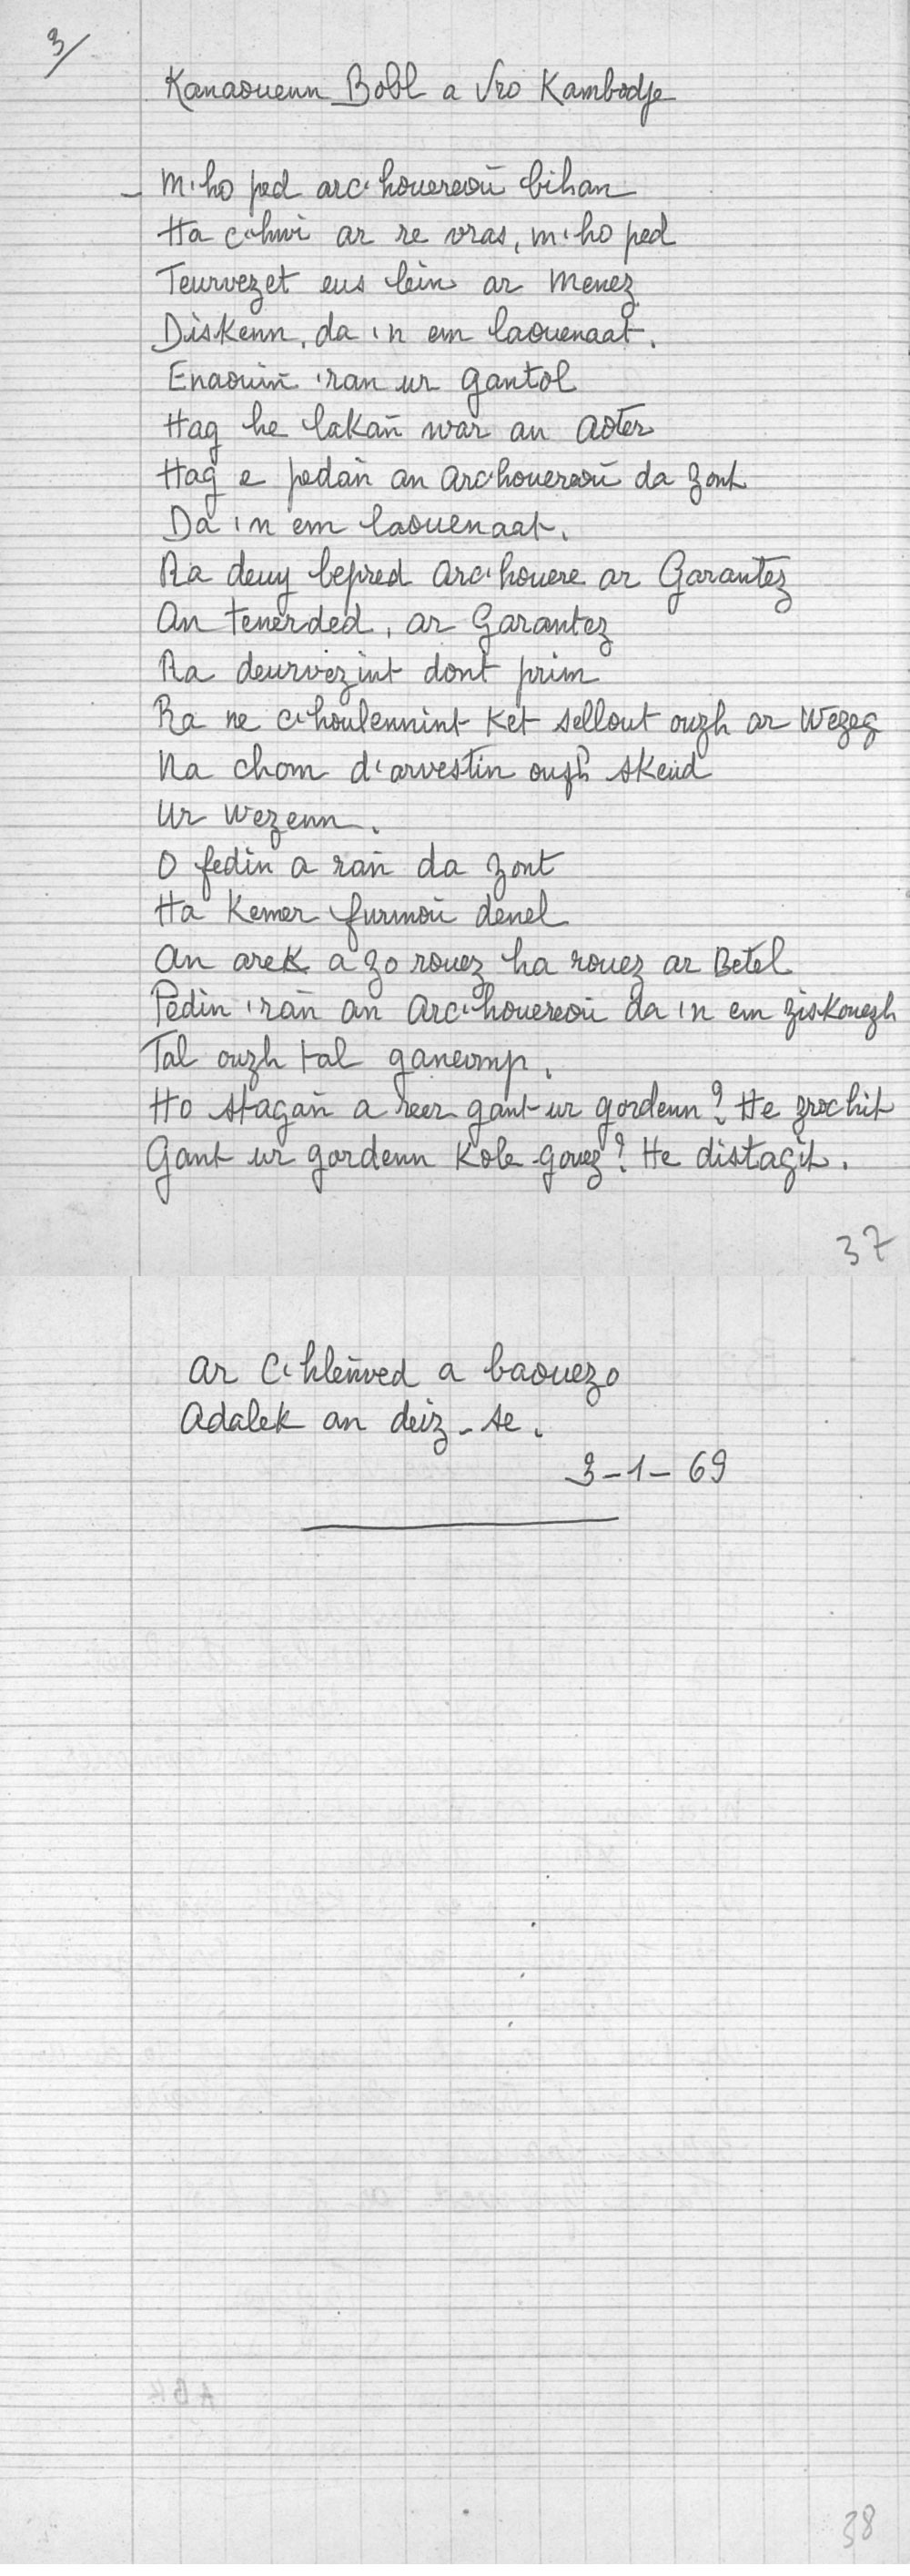 3/
Kanaouenn Bobl a Vro Kambodje
_ M'ho ped arc'houereoù bihan
Ha c'hwi ar re vras, m'ho ped
Teurvezet eus lein ar Menez
Diskenn, da 'n em laouenaat.
Enaouiñ 'ran ur gantol
Hag he lakañ war an Aoter
Hag e pedañ an Arc'houereoù da zont
Da 'n em laouenaat.
Ra deuy bepred Arc'houere ar Garantez
An tenerded, ar Garantez
Ra deurvezint dont prim
Ra ne c'houlennint ket sellout ouzh ar Wezeg
Na chom d'arvestiñ ouzh skeud
Ur wezenn.
O fediñ a rañ da zont
Ha kemer furmoù denel
An arek a zo rouez ha rouez ar Betel
Pediñ 'rañ an Arc'houereoù da 'n em ziskouezh
Tal ouzh tal ganeomp.
Ho stagañ a reer gant ur gordenn? He zrochit
Gant ur gordenn kole-gouez? He distagit.
37
Ar C'hleñved a baouezo
Adalek an deiz-se.
3-1-69
38